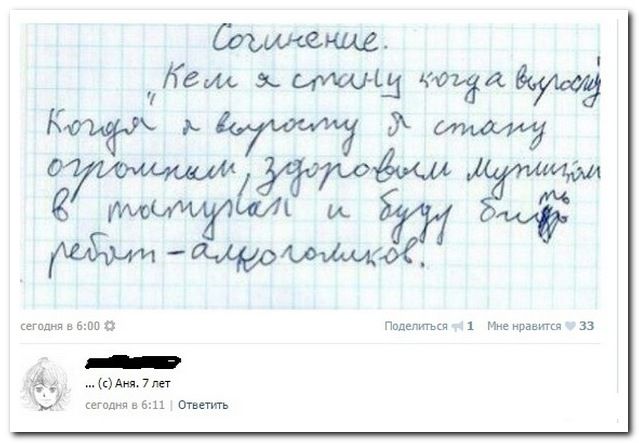 Сочинение.
"Кем я стану когда вырасту
Когда я вырасту я стану
огромным, здоровым мужиком
в татухах и буду бить
ребят-алкоголиков.
сегодня в 6:00 Поделиться 1 Мне нравится 33
... (c) Аня. 7 лет
сегодня в 6:11 | Ответить